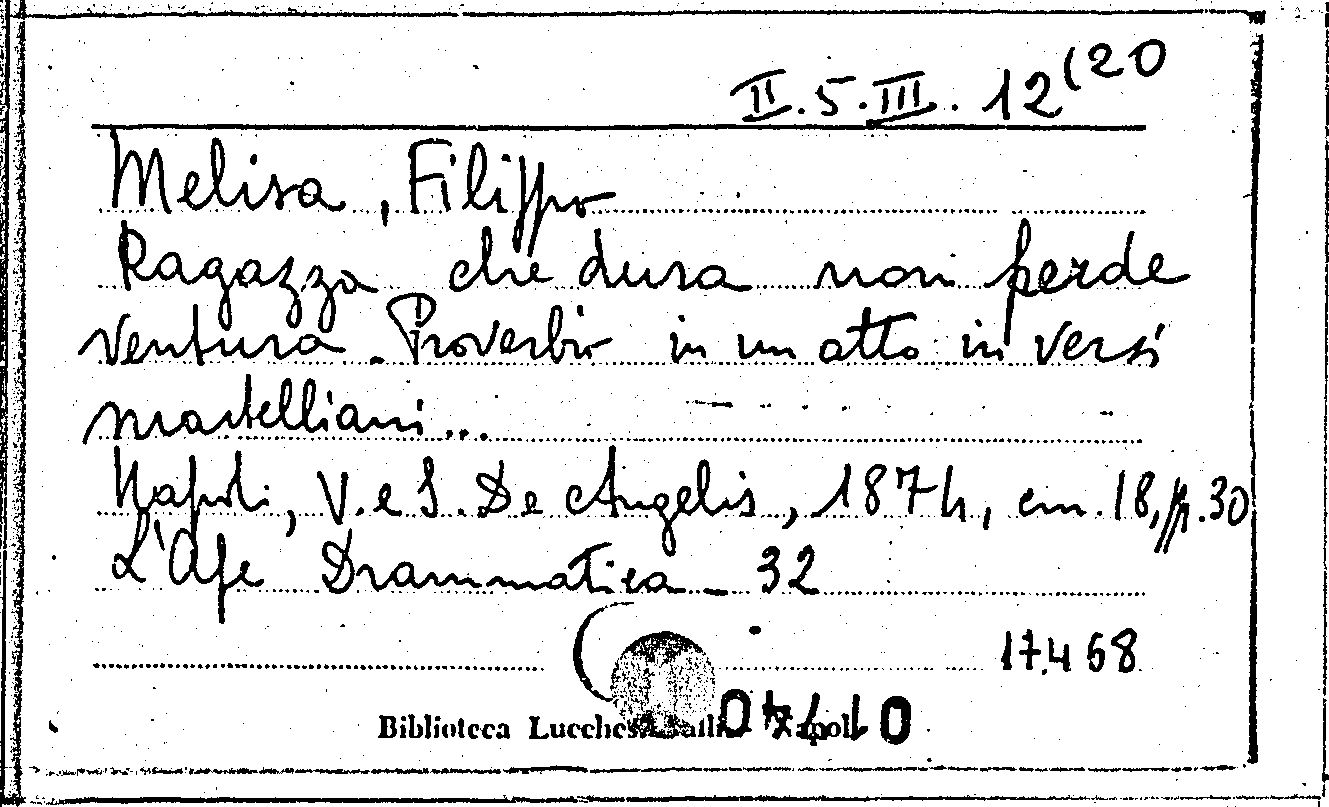 II.5.III.12(20
Melisa, Filippo
Ragazza che dura non perde
ventura. Proverbio in un atto in versi
martelliani...
Napoli, V. e S. De Angelis, 1874, cm. 18, pp. 30
L'Ape Drammatica - 32
17468
Biblioteca Lucchesi Palli - Napoli